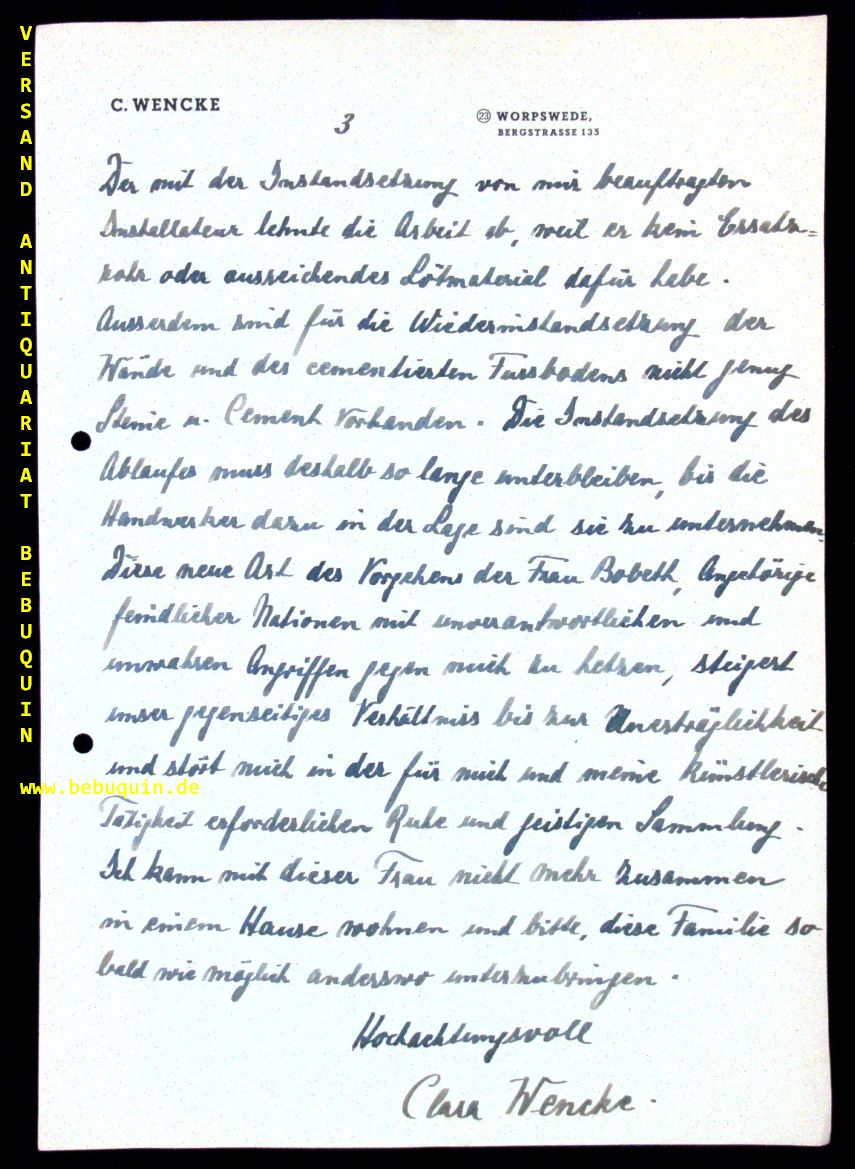 VERSAND ANTIQUARIAT BEBUQUIN
www.bebuquin.de
C. WENCKE
23 WORPSWEDE,
BERGSTRASSE 135
3
Der mit der Instandsetzung von mir beauftragten
Installateur lehnte die Arbeit ab, weil er kein Ersatz=
rohr oder ausreichendes Lötmaterial dafür habe.
Ausserdem sind für die Wiederinstandsetzung der
Wände und des cementierten Fussbodens nicht genug
Steine u. Cement vorhanden. Die Instandsetzung des
Ablaufes muss deshalb so lange unterbleiben, bis die
Handwerker dazu in der Lage sind sie zu unternehmen.
Diese neue Art des Vorgehens der Frau Bobeth, Angehörige
feindlicher Nationen mit unverantwortlichen und
unwahren Angriffen gegen mich zu hetzen, steigert
unser gegenseitiges Verhältniss bis zur Unerträglichkeit
und stört mich in der für mich und meine künstlerische
Tätigkeit erforderlichen Ruhe und geistigen Sammlung.
Ich kann mit dieser Frau nicht mehr zusammen
in einem Hause wohnen und bitte, diese Familie so
bald wie möglich anderswo unterzubringen.
Hochachtungsvoll
Clara Wencke.